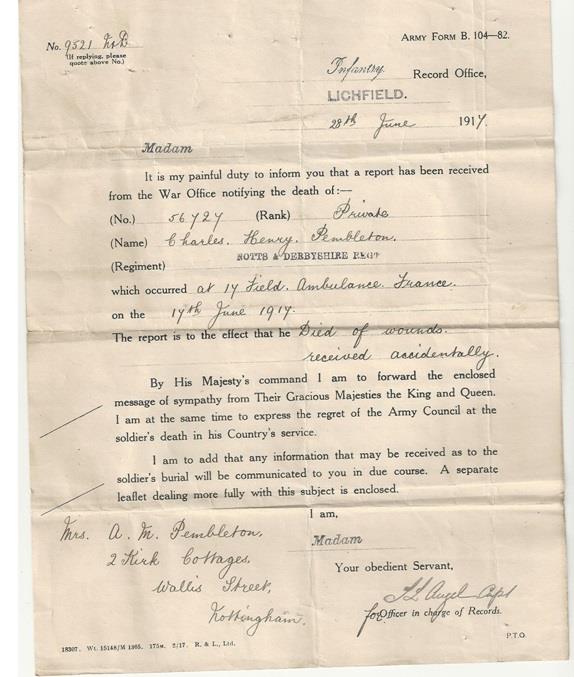 No. 9521
ARMY FORM B. 104—82.
(If replying, please
quote above No.)
Infantry Record Office,
LICHFIELD.
28th June 1917.
Madam
It is my painful duty to inform you that a report has been received
from the War Office notifying the death of:—
(No.) 56727 (Rank) Private
(Name) Charles. Henry. Pembleton.
(Regiment) NOTTS & DERBYSHIRE REGT
which occurred at 17 Field. Ambulance. France.
on the 17th June 1917.
The report is to the effect that he Died of wounds.
received accidentally.
By His Majesty's command I am to forward the enclosed
message of sympathy from Their Gracious Majesties the King and Queen.
I am at the same time to express the regret of the Army Council at the
soldier's death in his Country's service.
I am to add that any information that may be received as to the
soldier's burial will be communicated to you in due course. A separate
leaflet dealing more fully with this subject is enclosed.
I am,
Madam
Your obedient Servant,
Capt
for Officer in charge of Records.
Mrs. A. M. Pembleton.
2 Kirk Cottages,
Wallis Street,
Nottingham.
P.T.O.
18307. Wt. 15148/M 1365. 175M. 2/17. R. & L., Ltd.